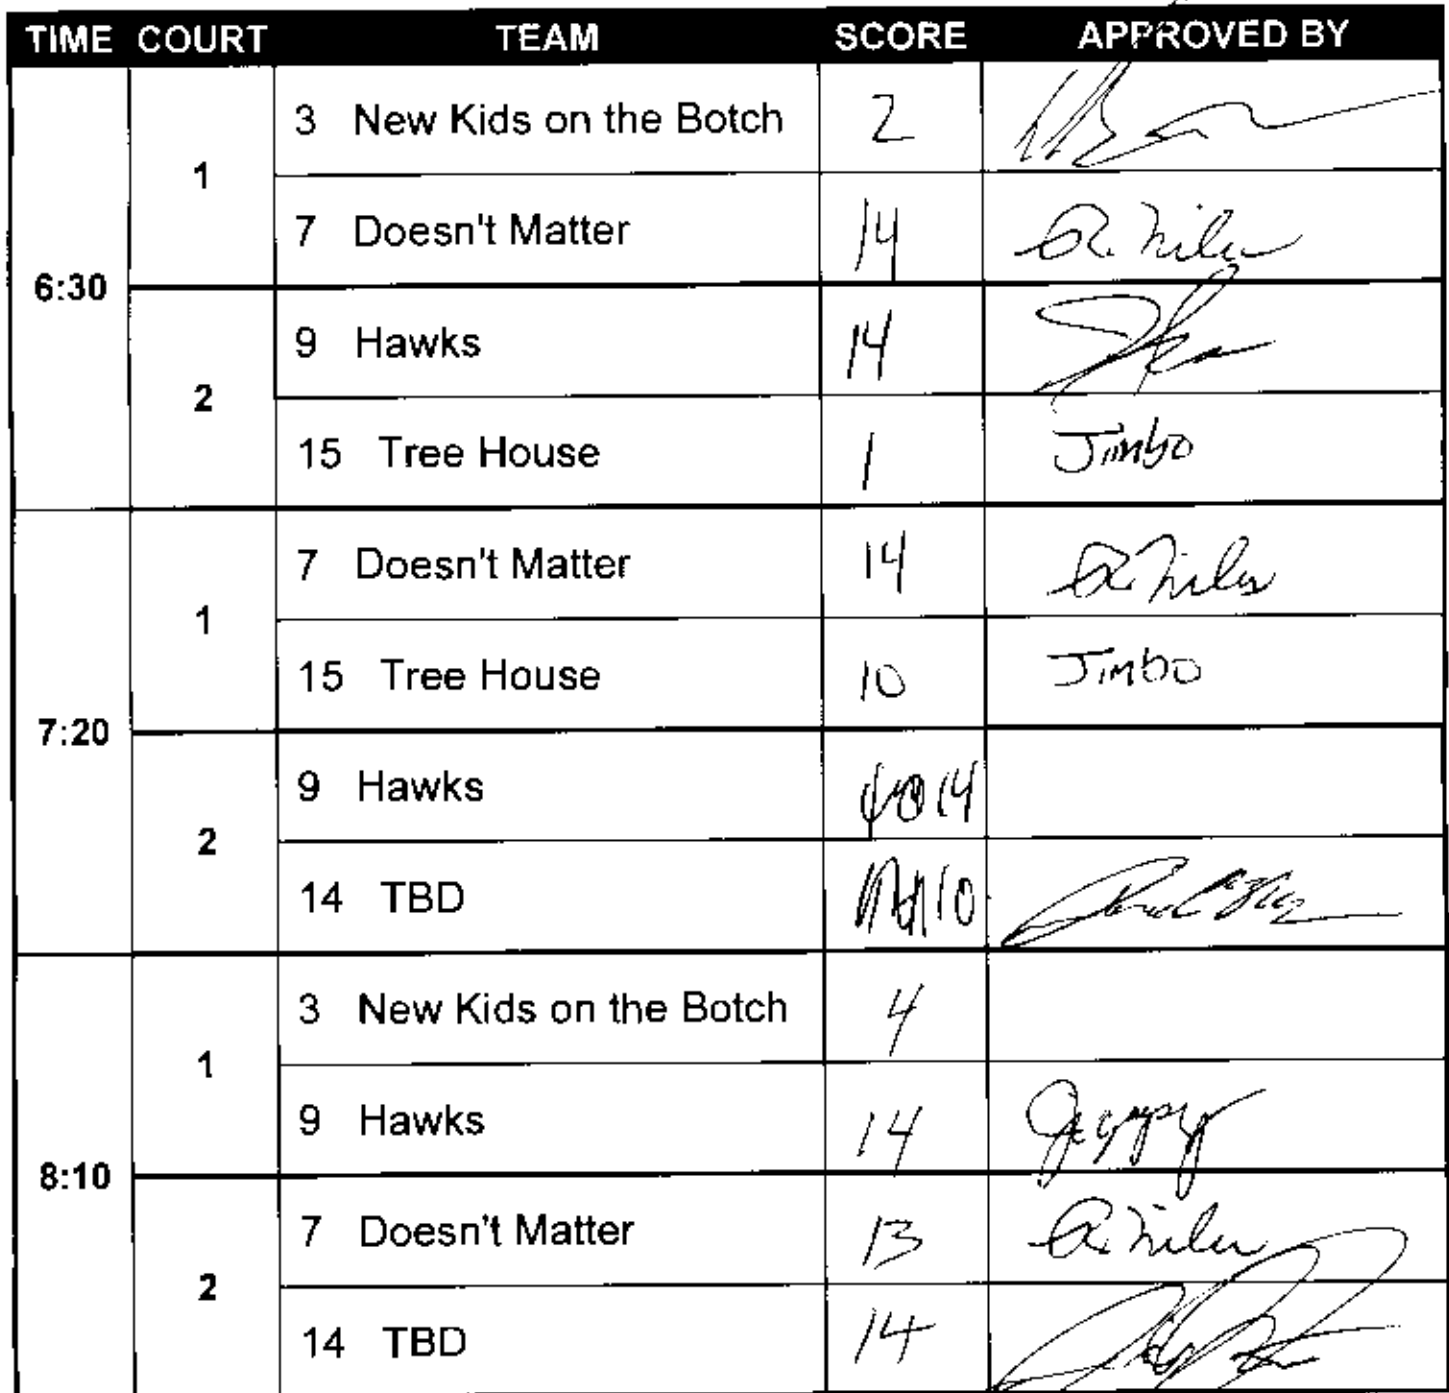 TIME COURT TEAM SCORE APPROVED BY
6:30
1
3 New Kids on the Botch 2
7 Doesn't Matter 14
2
9 Hawks 14
15 Tree House 1 Jimbo
7:20
1
7 Doesn't Matter 14
15 Tree House 10 Jimbo
2
9 Hawks 14
14 TBD 10
8:10
1
3 New Kids on the Botch 4
9 Hawks 14
2
7 Doesn't Matter 13
14 TBD 14